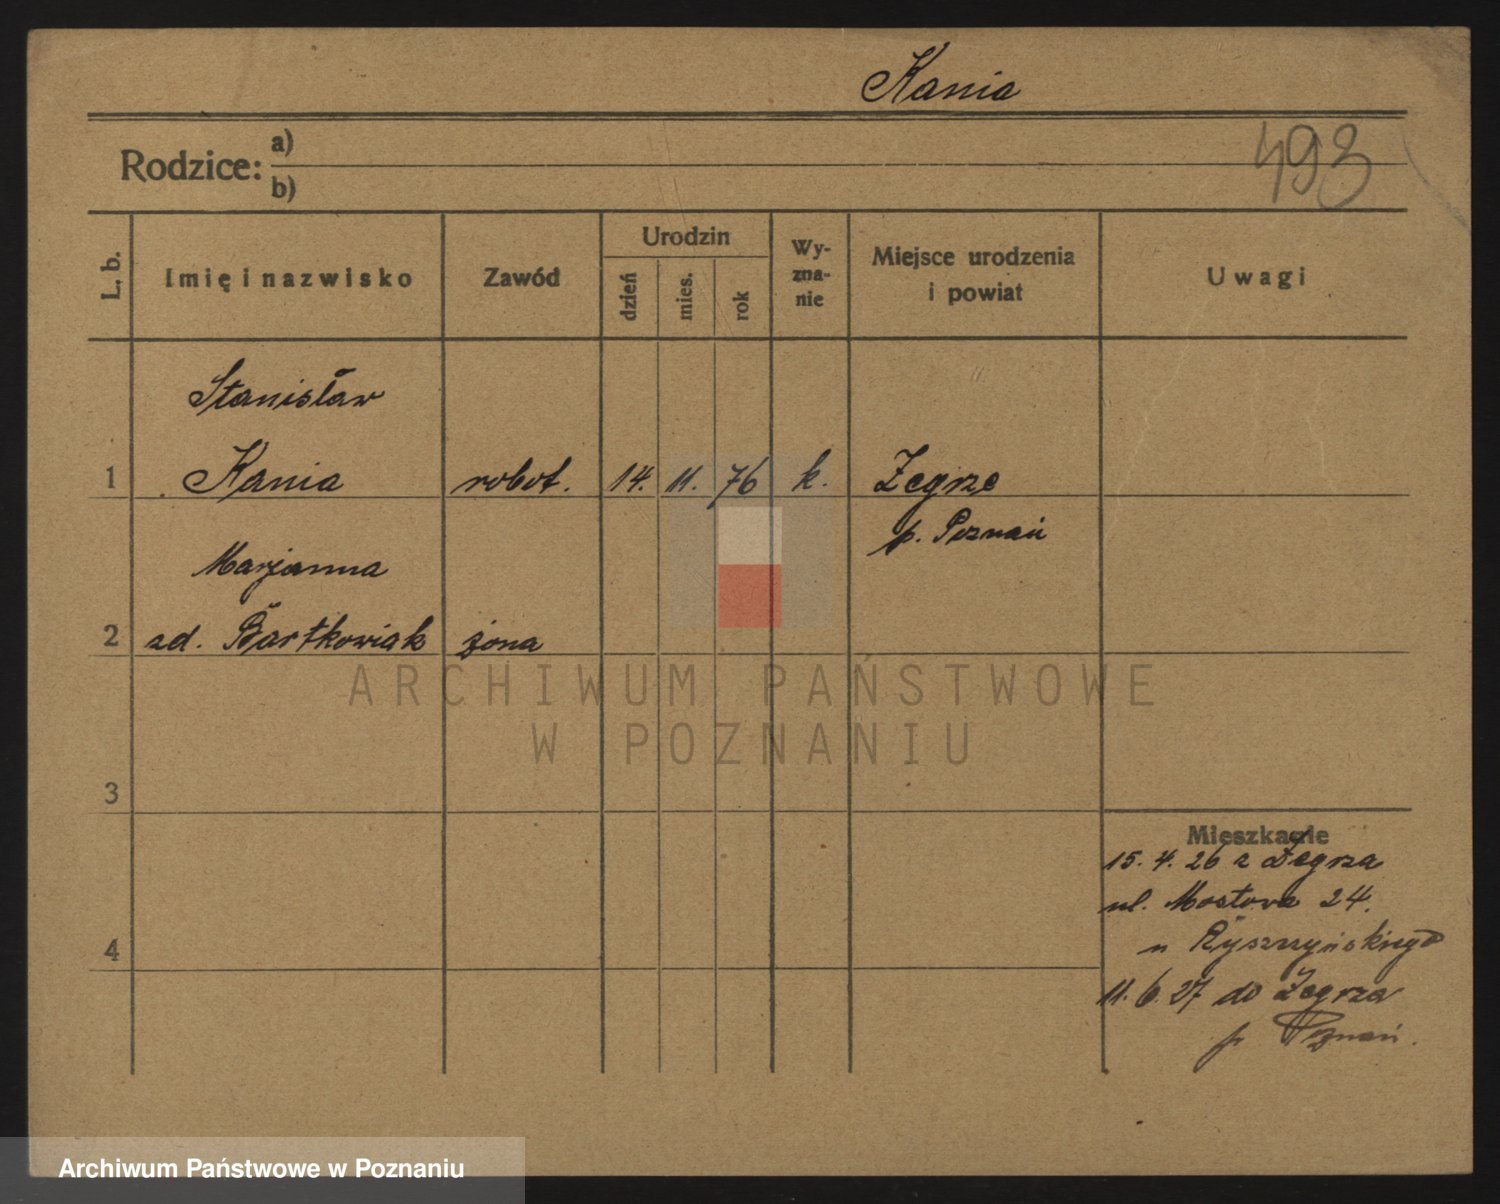 Kania
493
Rodzice: a)
b)
L. b.
Imię i nazwisko
Zawód
Urodzin
dzień
mies.
rok
Wy-
zna-
nie
Miejsce urodzenia
i powiat
Uwagi
Stanisław
1 Kania robot. 14. 11. 76 k. Zegrze
p. Poznań
Marjanna
2 zd. Bartkowiak żona
3
Mieszkanie
15. 4. 26 z Zegrza
ul. Mostowa 24.
u Ryszczyńskiego
4
11. 6. 27 do Zegrza
p. Poznań.
ARCHIWUM PAŃSTWOWE
W POZNANIU
Archiwum Państwowe w Poznaniu